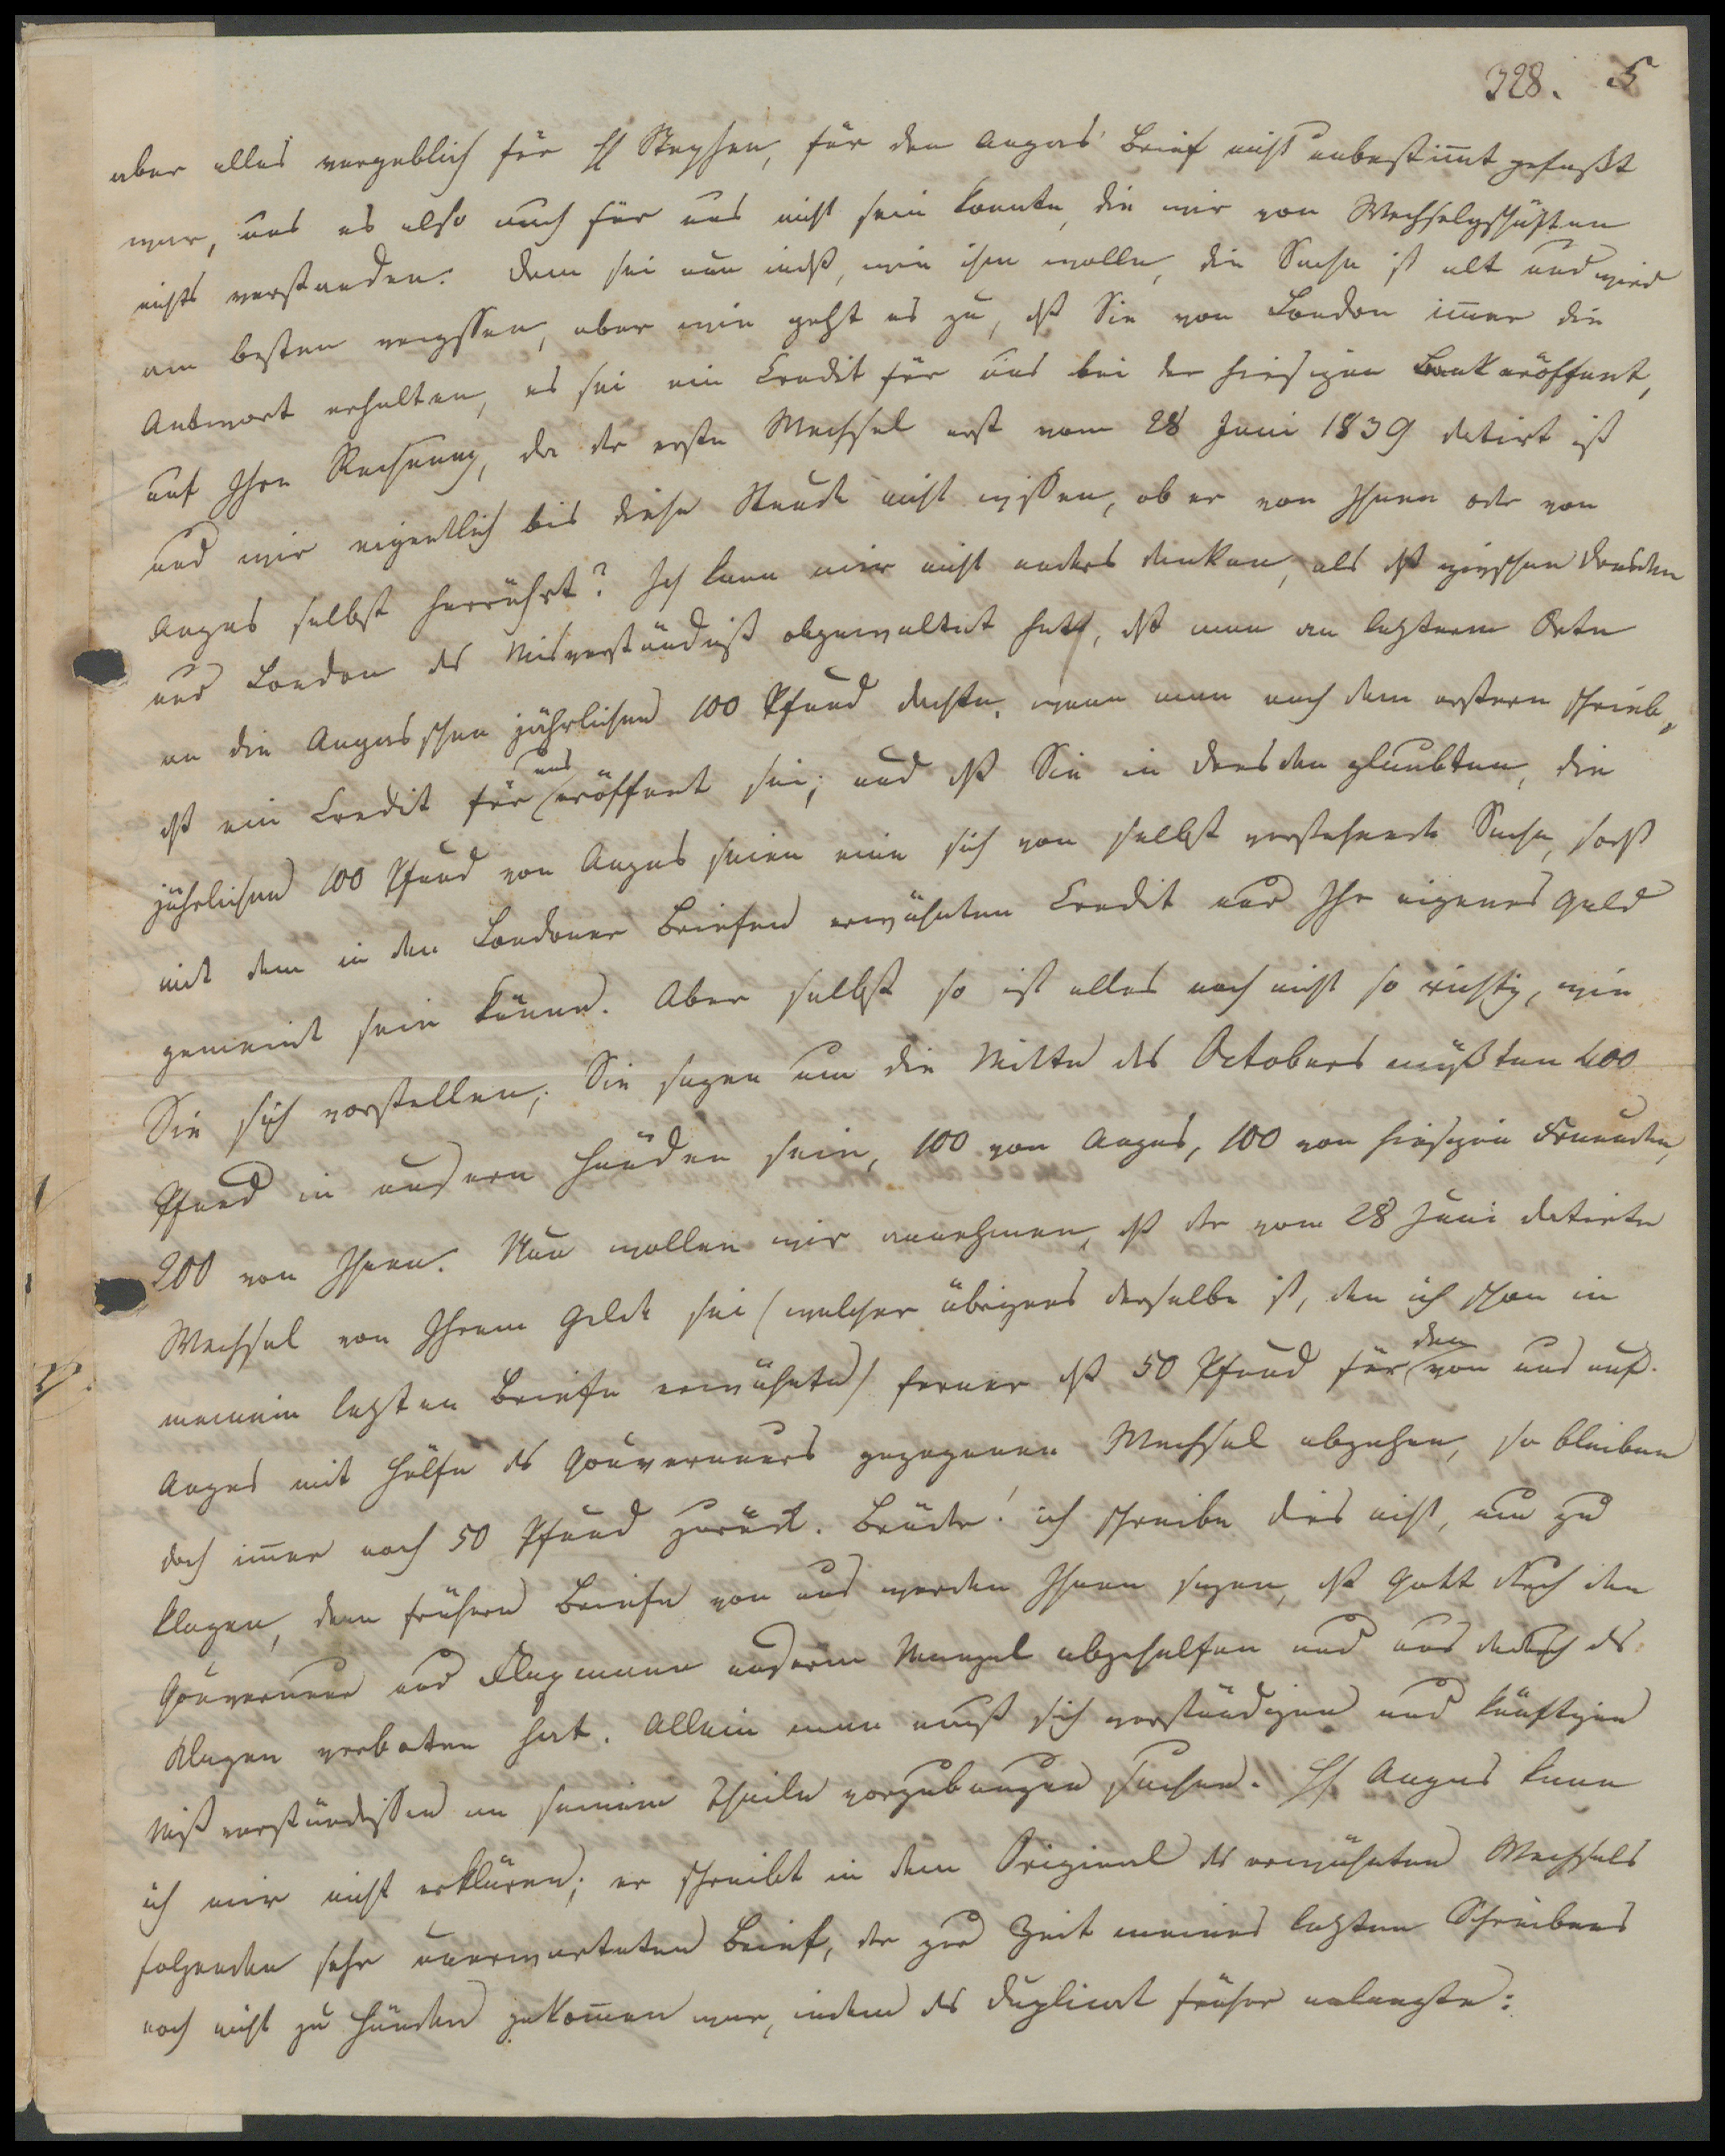 328. 5
aber alles vergeblich für H Stephen, für den Angas' Brief nicht unbestim̄t gefaßt
war, was es also auch für uns nicht sein konnte, die wir von Wechselgeschäften
nichts verstanden. Dem sei nun indeß, wie ihm wolle, die Sache ist alt und wird
am besten vergessen, aber wie geht es zu, dß Sie von London im̄er die
Antwort erhalten, es sei ein Credit für uns bei der hiesigen Bank eröffnet,
auf Ihre Rechnung, da der erste Wechsel erst vom 28 Juni 1839 datirt ist
und wir eigentlich bis diese Stunde nicht wissen, ob er von Ihnen oder von
Angas selbst herrührt? Ich kann mir nicht anders denken, als dß zwischen Dresden
und London das Misverständniß obgewaltet hat, dß man an letzterm Orte
an die Angasschen jährlichen 100 Pfund dachte, wenn man nach dem erstern schrieb,
dß ein Credit für uns eröffnet sei; und dß Sie in Dresden glaubten, die
jährlichen 100 Pfund von Angas seien eine sich von selbst verstehende Sache, so dß
mit dem in den Londoner Briefen erwähnten Credit nur Ihr eigenes Geld
gemeint sein könne. Aber selbst so ist alles noch nicht so richtig, wie
Sie sich vorstellen; Sie sagen um die Mitte des Octobers müßten 400
Pfund in unsern Händen sein, 100 von Angas, 100 von hiesigen Freunden,
200 von Ihnen. Nun wollen wir annehmen, dß der vom 28 Juni datirte
Wechsel von Ihrem Gelde sei (welcher übrigens derselbe ist, den ich schon in
meinem letzten Briefe erwähnte) ferner dß 50 Pfund für den von uns auf
Angas mit Hülfe des Gouverneurs gezogenen Wechsel abgehen, so bleiben
doch im̄er noch 50 Pfund zurück. Brüder! ich schreibe dies nicht, um zu
klagen, denn frühere Briefe von uns werden Ihnen sagen, dß Gott durch den
Gouverneur und Flaxmann unserm Mangel abgeholfen und uns dadurch das
Klagen verboten hat. Allein man muß sich verständigen und künftigen
Mißverständissen an seinem Theile vorzubeugen suchen. H. Angas kann
ich mir nicht erklären; er schreibt in dem Original des erwähnten Wechsels
folgenden sehr unerwarteten Brief, der zur Zeit meines letzten Schreibens
noch nicht zu Händen gekom̄en war, indem das Duplicat früher anlangte: